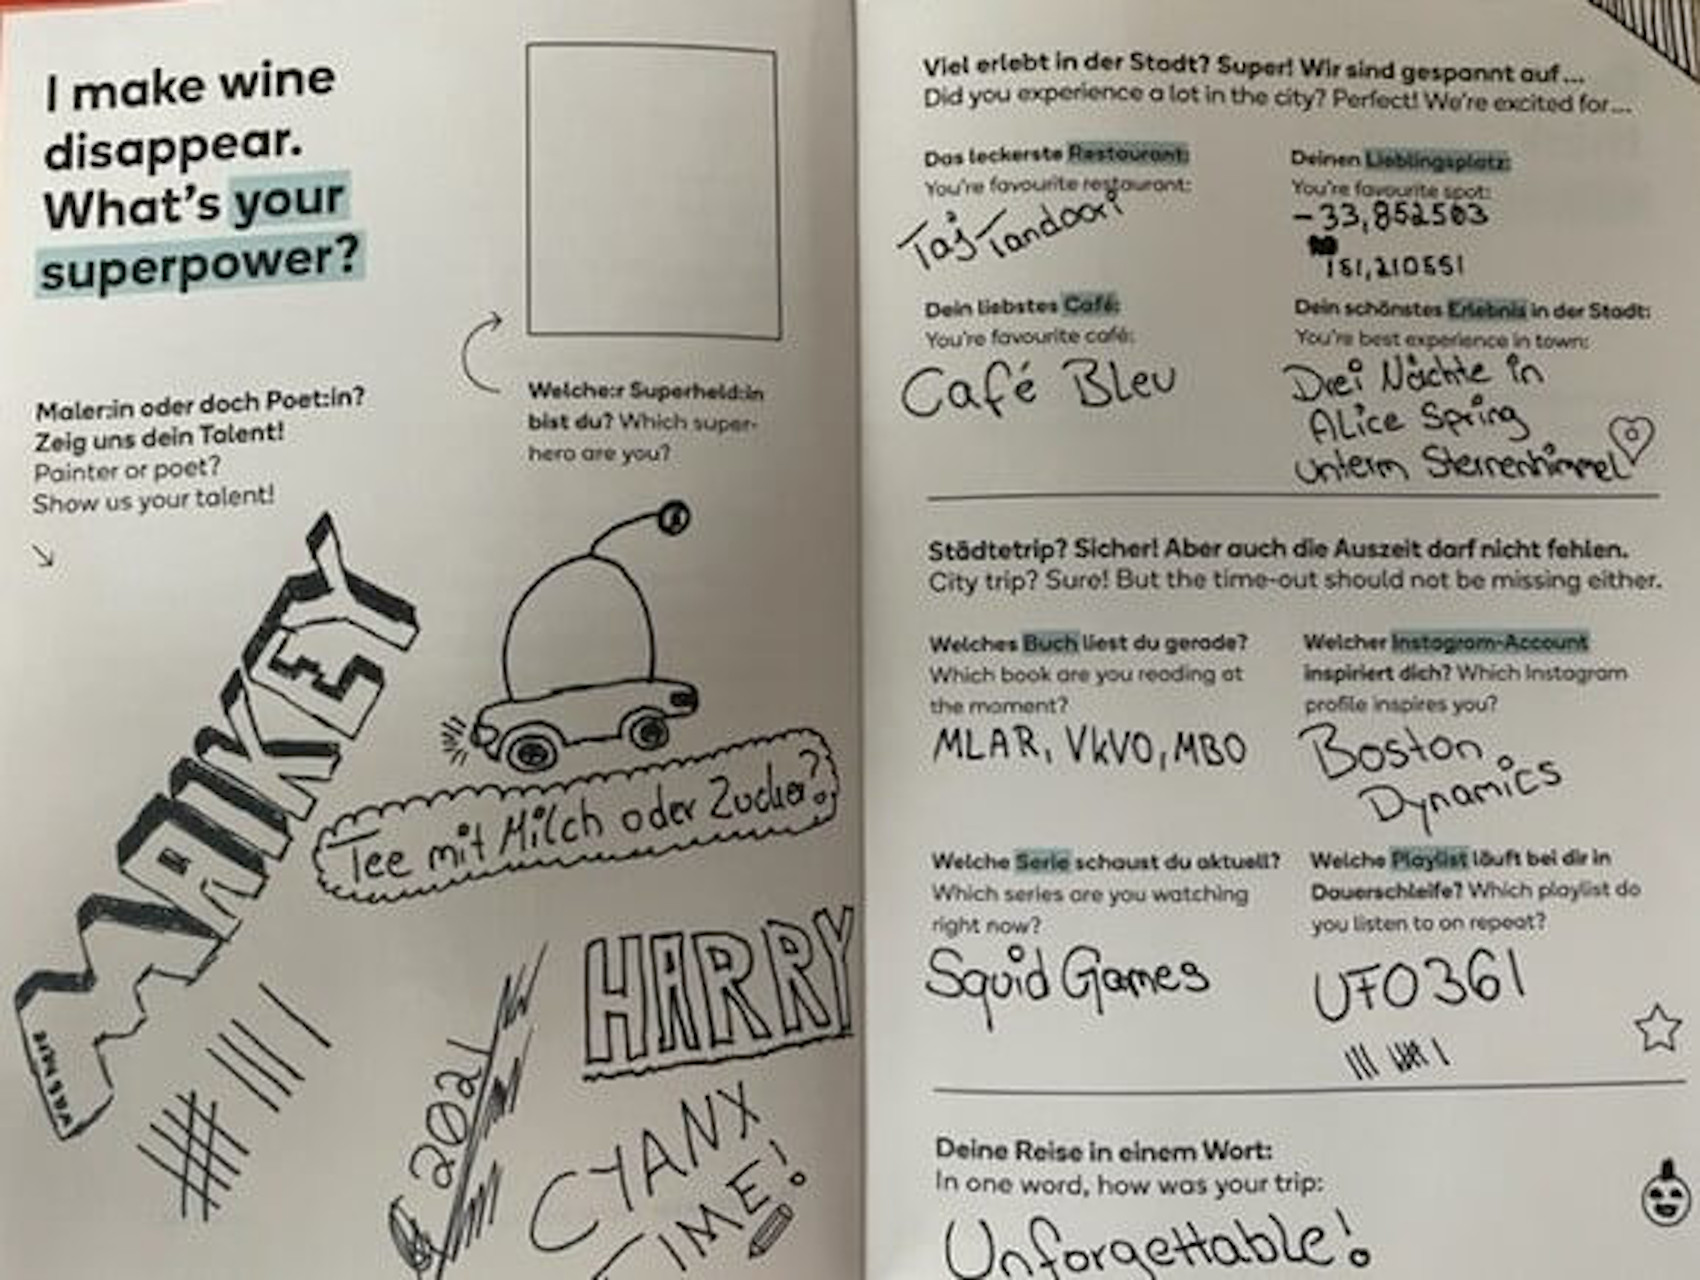 I make wine
disappear.
What's your
superpower?
Welche:r Superheld:in
bist du? Which super-
hero are you?
Maler:in oder doch Poet:in?
Zeig uns dein Talent!
Painter or poet?
Show us your talent!
Tee mit Milch oder Zucker?
WAS HERE
HARRY
2021
CYANX
TIME!
Viel erlebt in der Stadt? Super! Wir sind gespannt auf...
Did you experience a lot in the city? Perfect! We're excited for...
Das leckerste Restaurant:
You're favourite restaurant:
Taj Tandoori
Deinen Lieblingsplatz:
You're favourite spot:
-33,852503
151,210551
Dein liebstes Café:
You're favourite café:
Café Bleu
Dein schönstes Erlebnis in der Stadt:
You're best experience in town:
Drei Nächte in
Alice Spring
unterm Sternenhimmel
Städtetrip? Sicher! Aber auch die Auszeit darf nicht fehlen.
City trip? Sure! But the time-out should not be missing either.
Welches Buch liest du gerade?
Which book are you reading at
the moment?
MLAR, VkVO, MBO
Welcher Instagram-Account
inspiriert dich? Which Instagram
profile inspires you?
Boston
Dynamics
Welche Serie schaust du aktuell?
Which series are you watching
right now?
Squid Games
Welche Playlist läuft bei dir in
Dauerschleife? Which playlist do
you listen to on repeat?
UFO361
Deine Reise in einem Wort:
In one word, how was your trip:
Unforgettable!